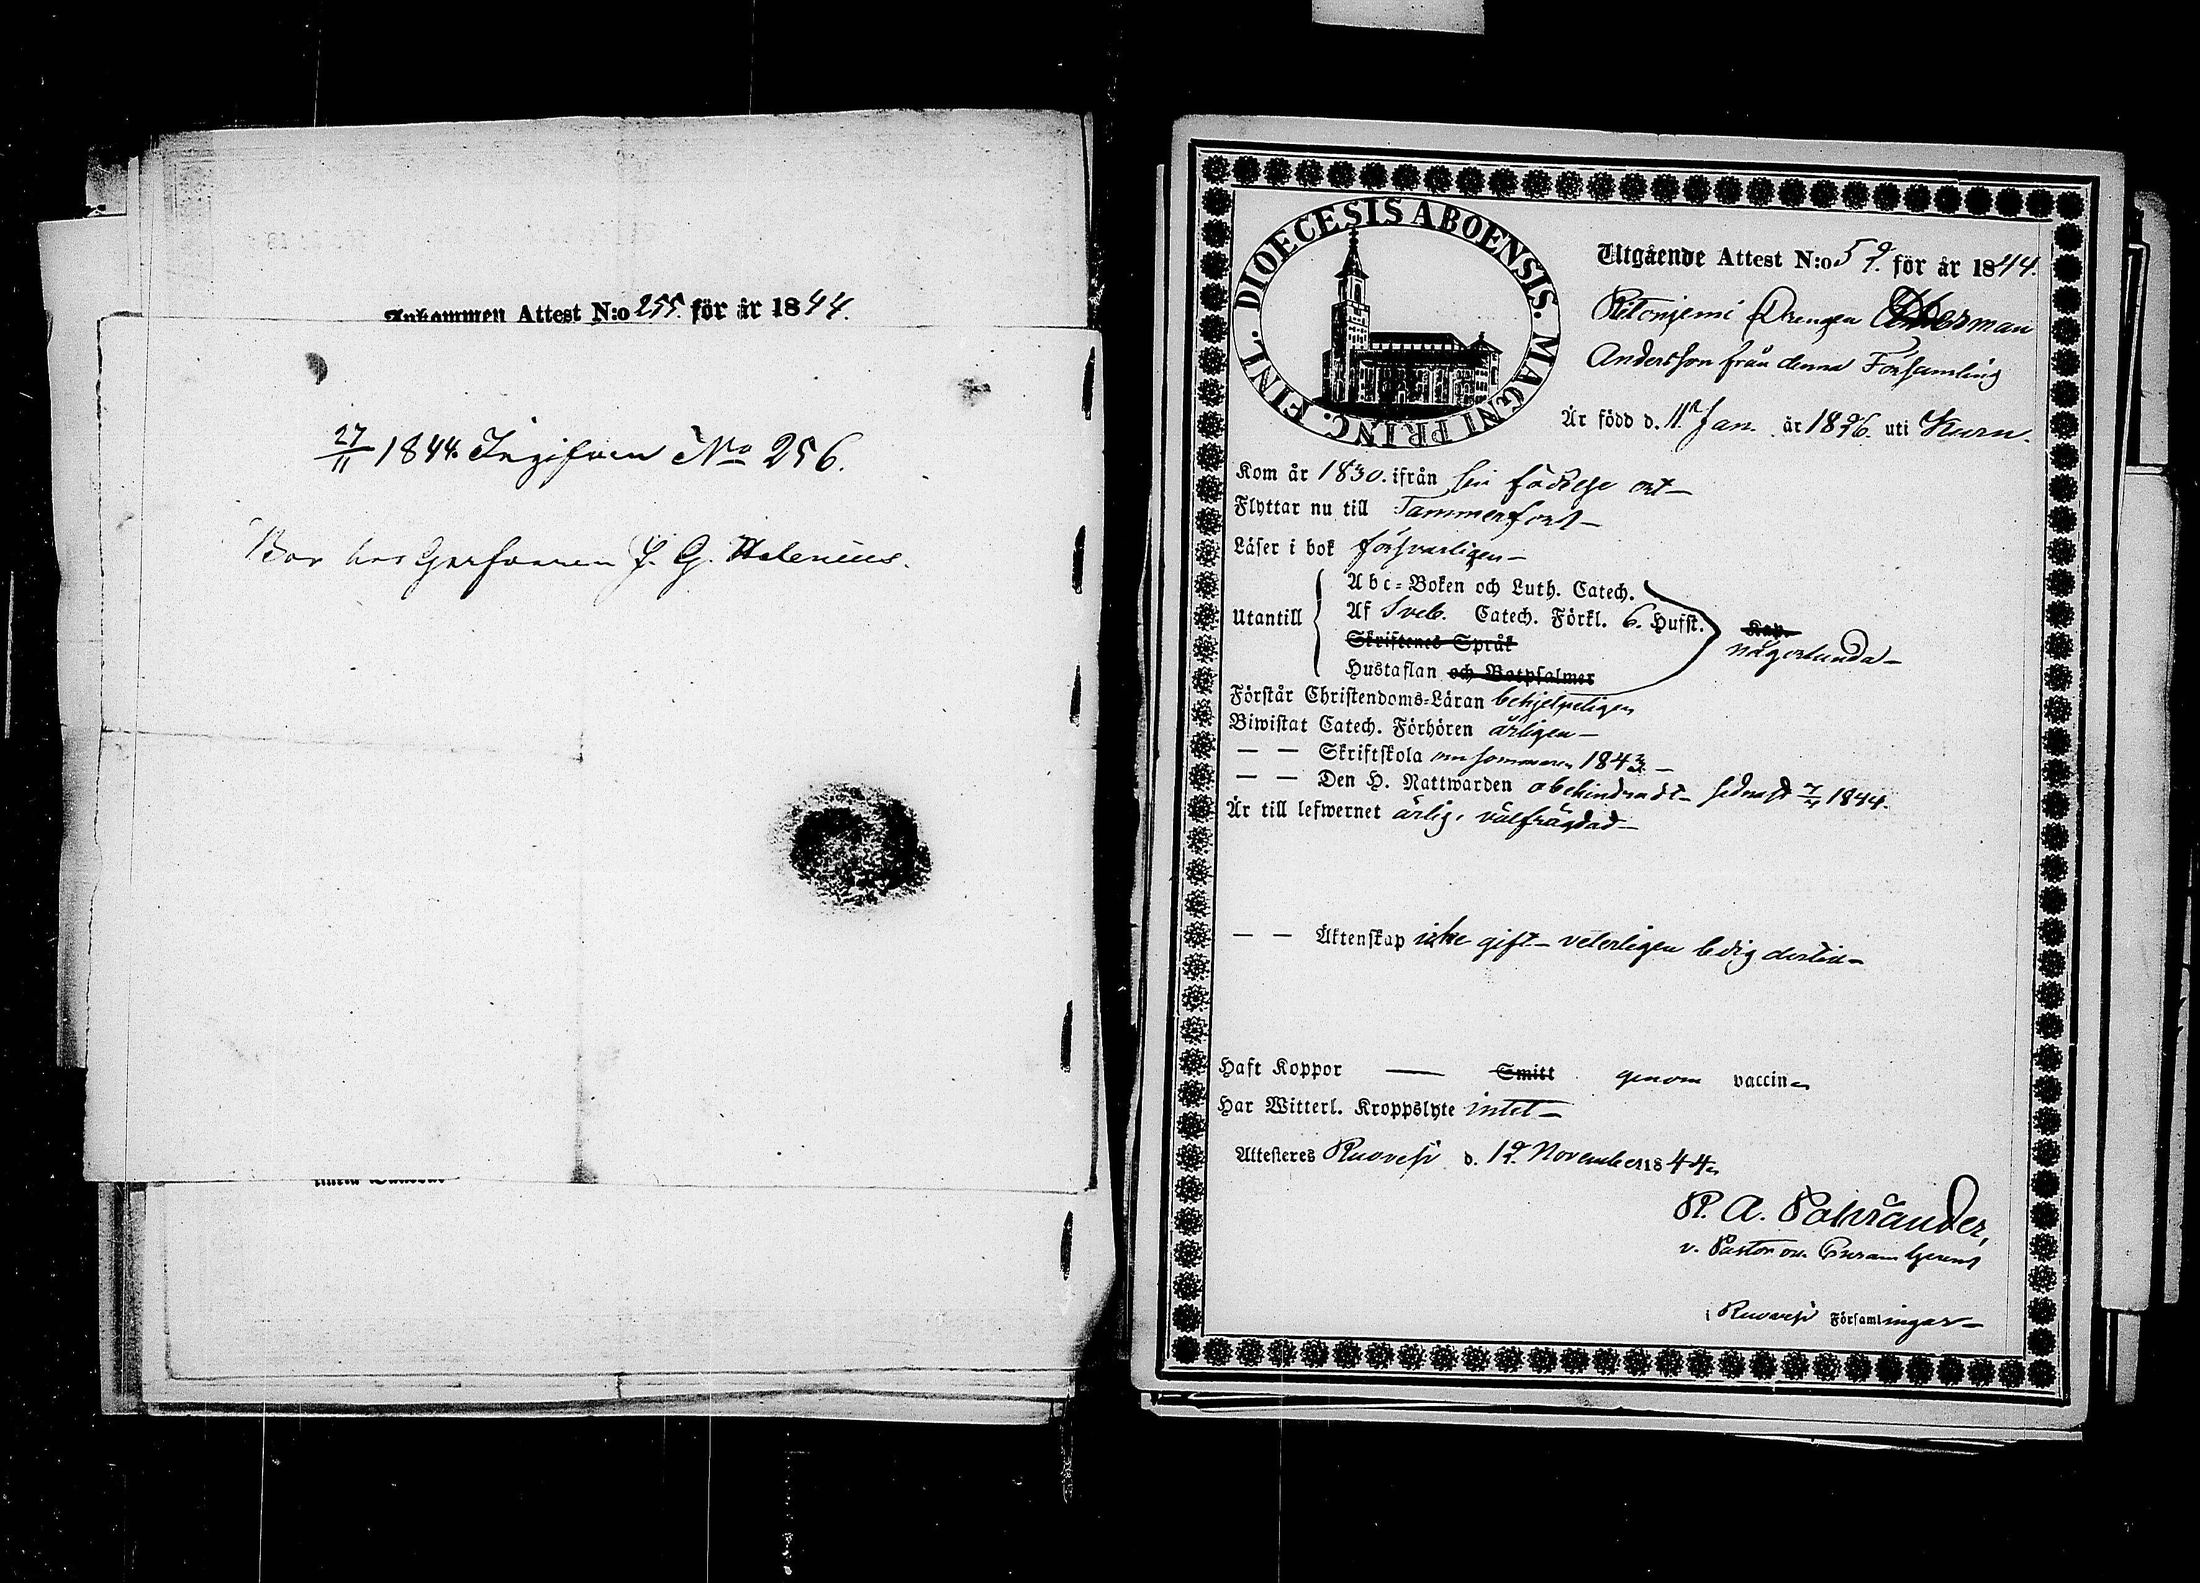 Ankommen Attest N:o 255. för år 1844.
27/11 1844. Ingifven No 256.
Bor hos Garfvaren J. G. Helenius.
DIOECESIS ABOENSIS. MAGNI PRINC. FINL.
Utgående Attest N:o 59. för år 1844.
Drengen Herman
Andersson från denna Församling
Är född d. 11 Jan. år 1826. uti Kuru.
Kom år 1830. ifrån sin födelse ort
Flyttar nu till Tammerfors
Läser i bok försvarligen
Abc-Boken och Luth. Catech.
Utantill Af Sveb. Catech. Förkl. 6. Hufst. Kap.
någorlunda
Skriftenes Språk
Hustaflan och Botpsalmer
Förstår Christendoms-Läran behjelpeligen
Biwistat Catech. Förhören årligen
— — Skriftskola om sommaren 1843
— — Den H. Nattwarden obehindradt sednast 1844.
Är till lefwernet ärlig, välfrägdad
— — Äktenskap icke gift veterligen ledig dertill
Haft Koppor — Smitt genom vaccin
Har Witterl. Kroppslyte intet
Attesteres Ruovesi d. 19. November 1844
v. Pastor
i Ruovesi Församlingar